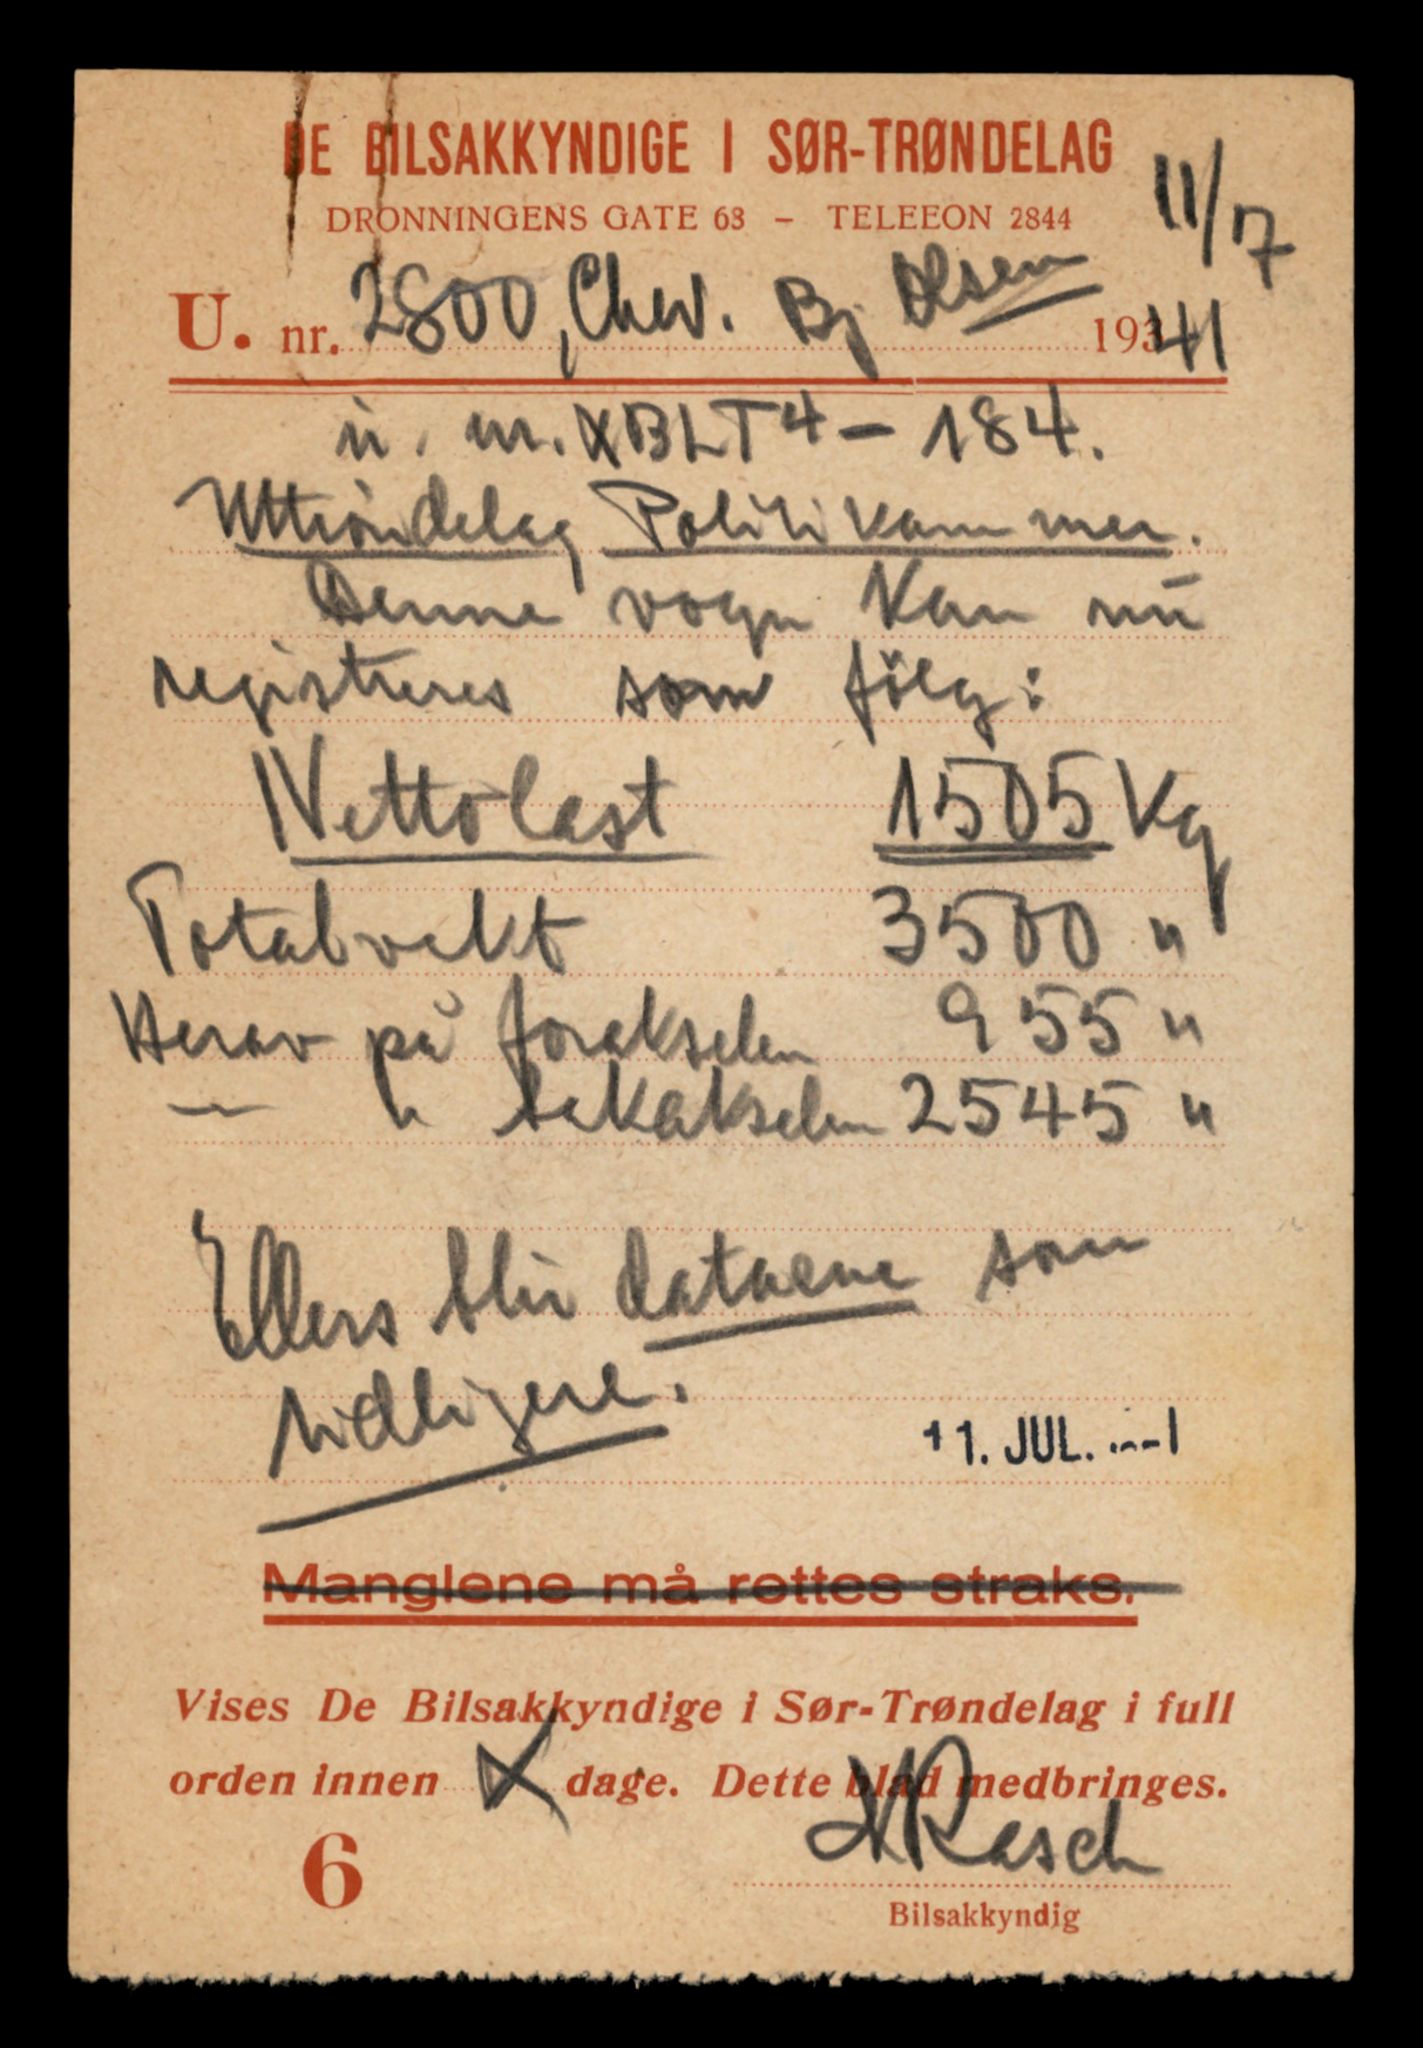 DE BILSAKKYNDIGE I SØR-TRØNDELAG
DRONNINGENS GATE 63 – TELEEON 2844
11/7
U. nr. 2800, Chev. Bj Olsen 193 41
u. nr. XBLT4 – 184.
Uttrøndelag Politikammer.
Denne vogn kan nu
registreres som følg:
Nettolast 1505 Kg
Totalvekt 3500 "
Herav på forakselen 955 "
— " bakakselen 2545 "
Ellers blir dataene som
tidligere.
11. JUL.
Manglene må rettes straks.
Vises De Bilsakkyndige i Sør-Trøndelag i full
orden innen dage. Dette blad medbringes.
6
NRasch
Bilsakkyndig